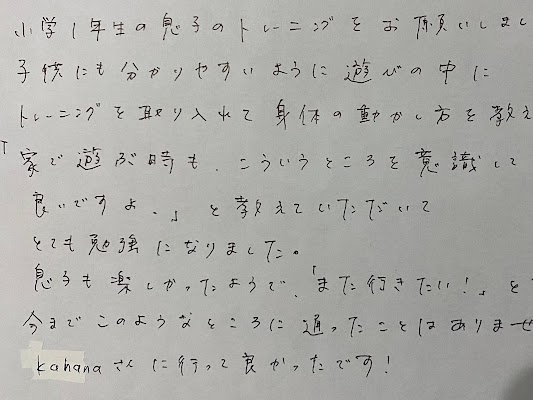 小学1年生の息子のトレーニングをお願いしまし
子供にも分かりやすいように遊びの中に
トレーニングを取り入れて身体の動かし方を教え
「家で遊ぶ時も、こういうところを意識して
良いですよ。」と教えていただいて
とても勉強になりました。
息子も楽しかったようで、「また行きたい!」と
今までこのようなところに通ったことはありませ
kahanaさんに行って良かったです!